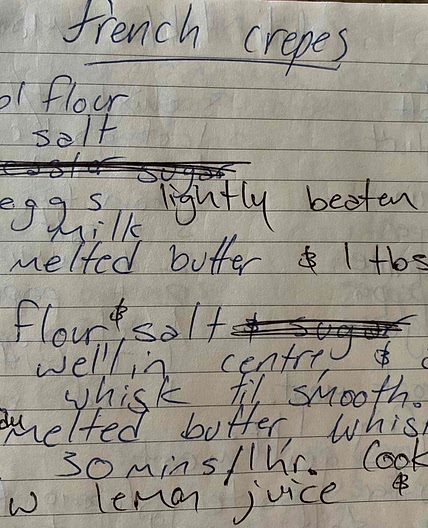 french crepes
ol flour
salt
eggs lightly beaten
milk
melted butter & 1 tbs
flour & salt
well in centre, &
whisk til smooth.
melted butter, whis
30 mins/1hr. Cook
w lemon juice &